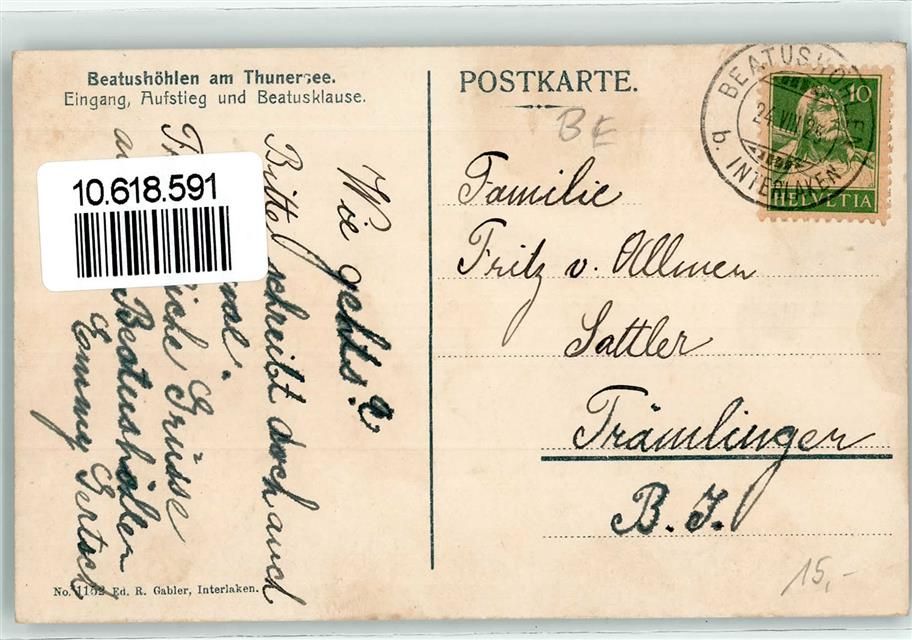 Beatushöhlen am Thunersee.
Eingang, Aufstieg und Beatusklause.
POSTKARTE.
BE
BEATUSHÖHLEN
24.VIII.
b. INTERLAKEN
10
HELVETIA
10.618.591
Familie
Fritz v. Allmen
Sattler
Trämlinger
B. J.
Wie gehts?
Bitte schreibt doch auch
Grüsse
Beatushöhlen
Emmy Gertsch
No. 1152 Ed. R. Gabler, Interlaken.
15,-